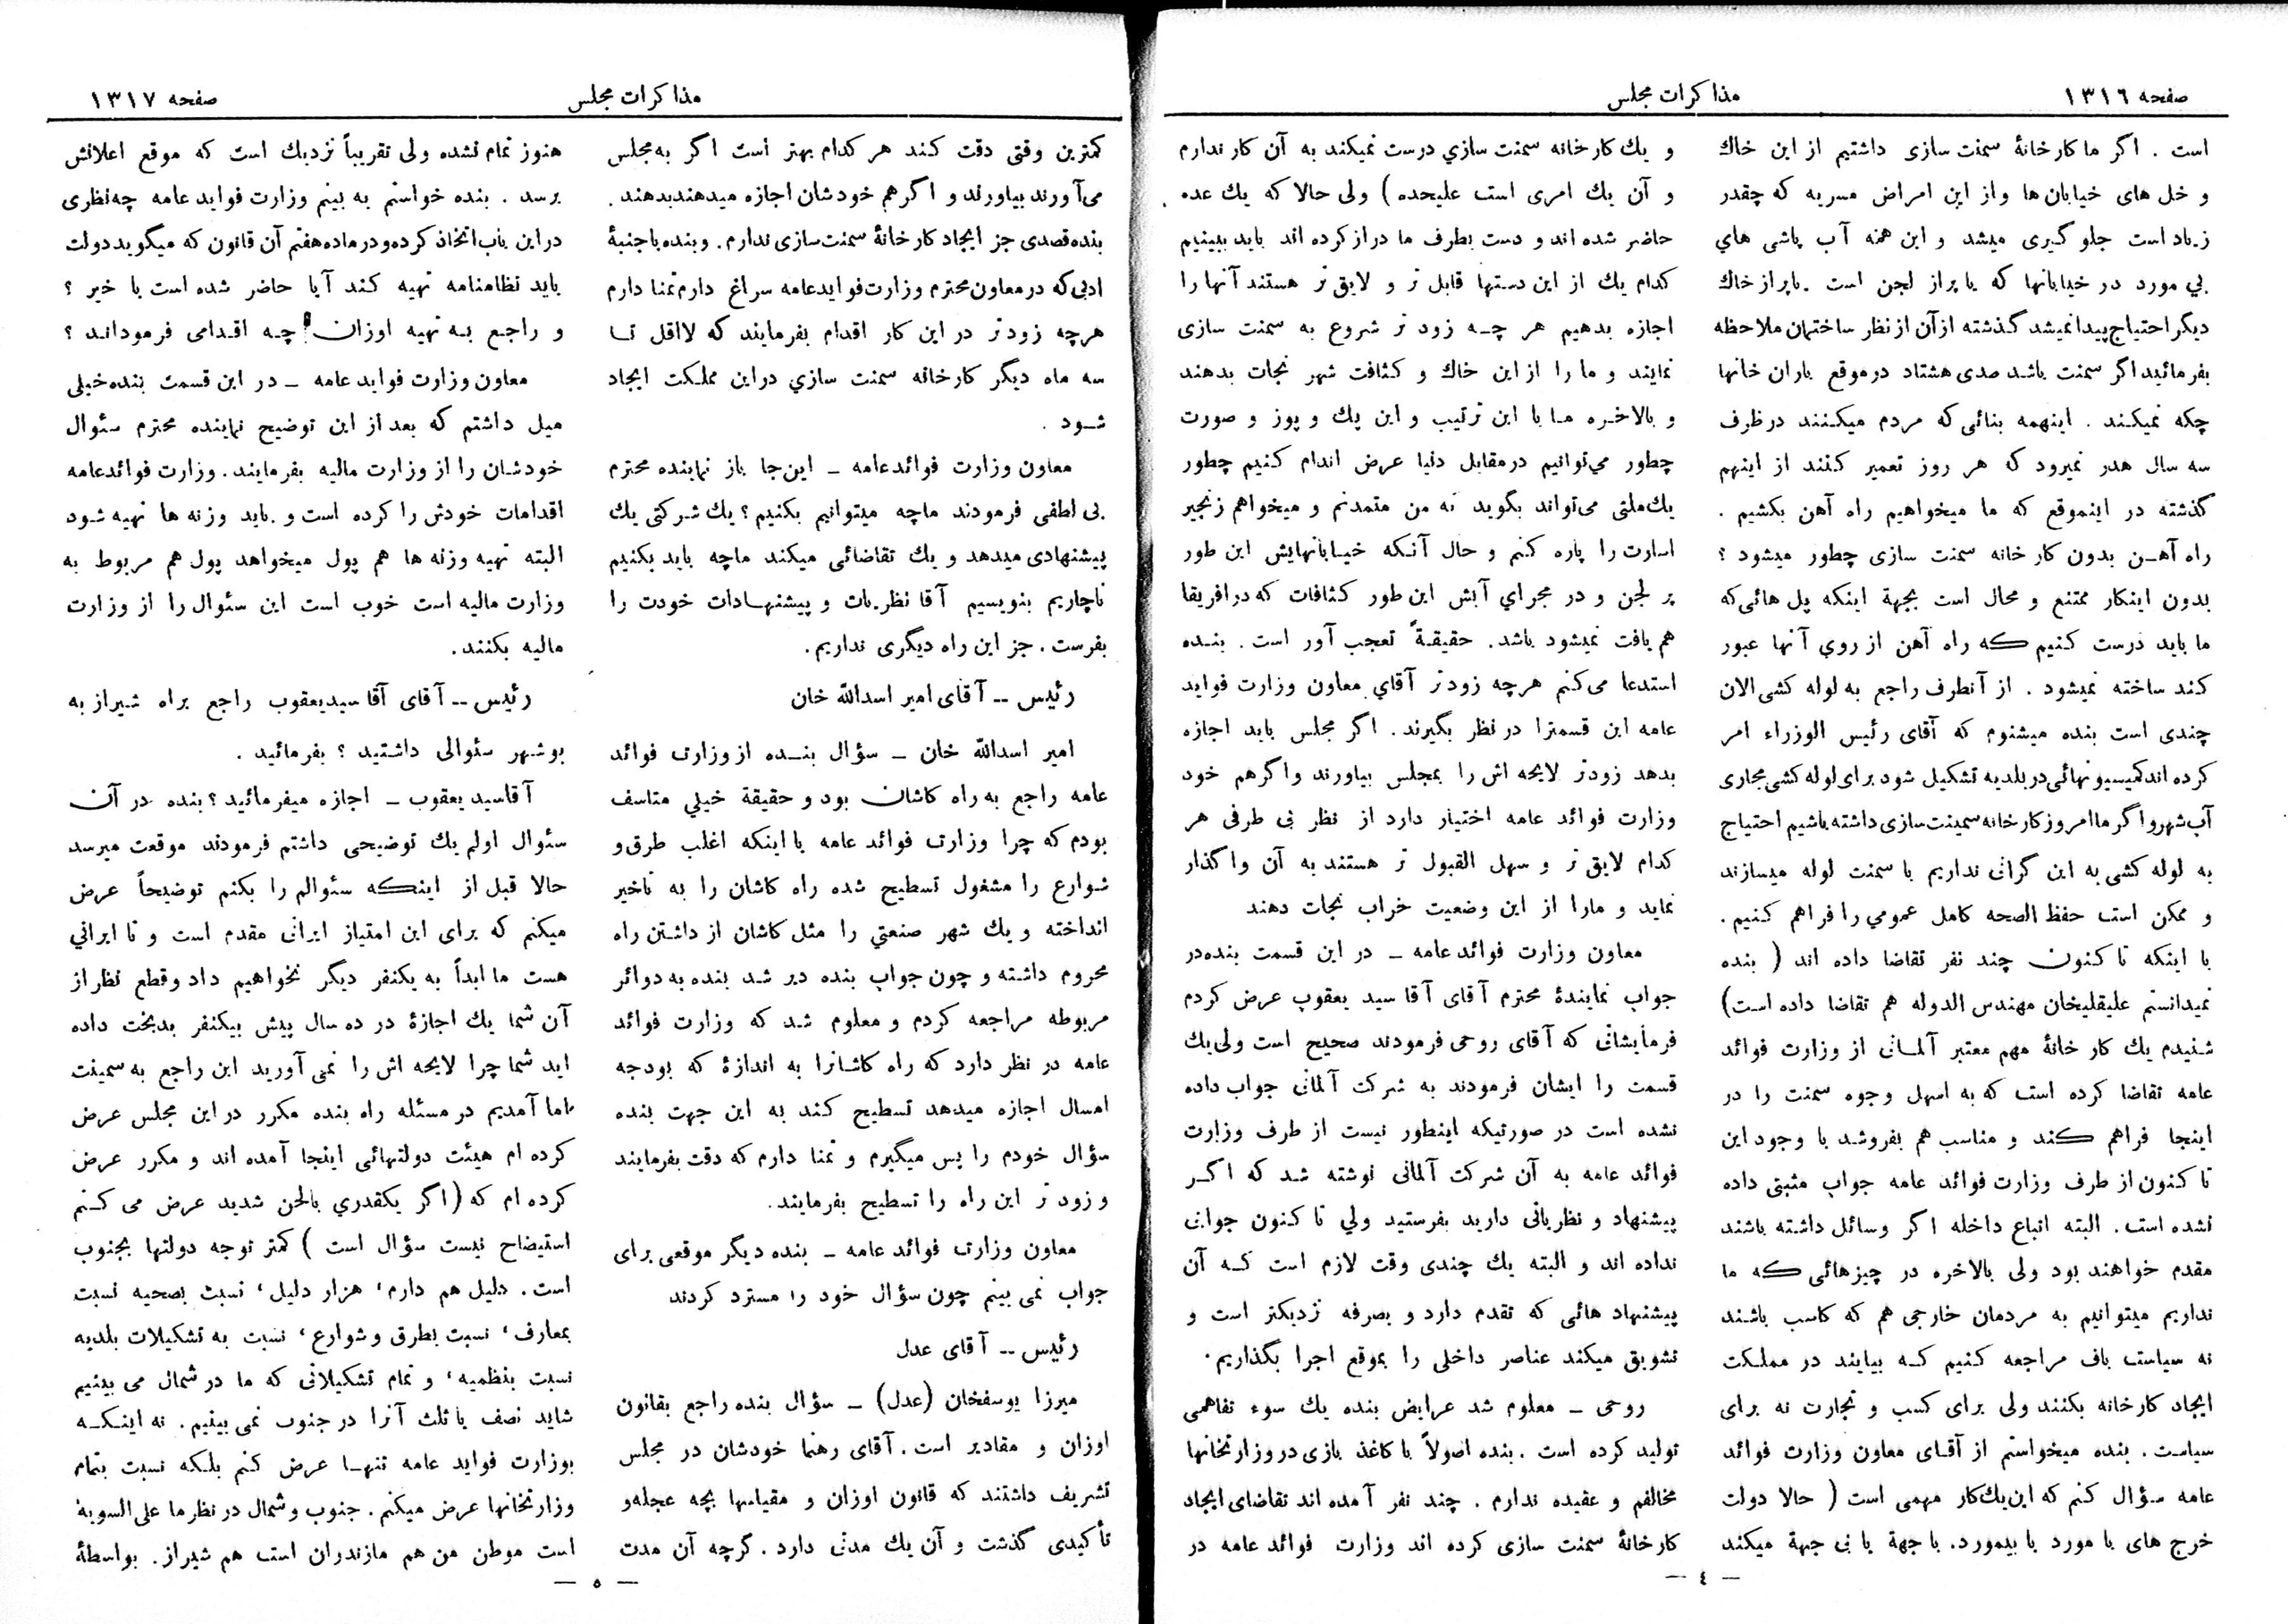 صفحه ۱۳۱٦
مذاکرات مجلس
است . اگر ما کارخانهٔ سمنت سازی داشتیم از این خاک
و خل های خیابان ها و از این امراض مسریه که چقدر
زیاد است جلوگیری میشد و این همه آب پاشی های
بی مورد در خیابانها که یا پر از لجن است یا پر از خاک
دیگر احتیاج پیدا نمیشد گذشته از آن از نظر ساختمان ملاحظه
بفرمائید اگر سمنت باشد صدی هشتاد در موقع باران خانها
چکه نمیکند . اینهمه بنائی که مردم میکنند در ظرف
سه سال هدر نمیرود که هر روز تعمیر کنند از اینهم
گذشته در اینموقع که ما میخواهیم راه آهن بکشیم .
راه آهن بدون کارخانه سمنت سازی چطور میشود ؟
بدون اینکار ممتنع و محال است بجهة اینکه پل هائی که
ما باید درست کنیم که راه آهن از روی آنها عبور
کند ساخته نمیشود . از آنطرف راجع به لوله کشی الان
چندی است بنده میشنوم که آقای رئیس الوزراء امر
کرده اند کمیسیونهائی در بلدیه تشکیل شود برای لوله کشی مجاری
آب شهر و اگر ما امروز کارخانه سمینت سازی داشته باشیم احتیاج
به لوله کشی به این گرانی نداریم با سمنت لوله میسازند
و ممکن است حفظ الصحه کامل عمومی را فراهم کنیم .
با اینکه تا کنون چند نفر تقاضا داده اند ( بنده
نمیدانستم علیقلیخان مهندس الدوله هم تقاضا داده است)
شنیدم یک کارخانهٔ مهم معتبر آلمانی از وزارت فوائد
عامه تقاضا کرده است که به اسهل وجوه سمنت را در
اینجا فراهم کند و مناسب هم بفروشد با وجود این
تا کنون از طرف وزارت فوائد عامه جواب مثبتی داده
نشده است . البته اتباع داخله اگر وسائل داشته باشند
مقدم خواهند بود ولی بالاخره در چیزهائی که ما
نداریم میتوانیم به مردمان خارجی هم که کاسب باشند
نه سیاست باف مراجعه کنیم که بیایند در مملکت
ایجاد کارخانه بکنند ولی برای کسب و تجارت نه برای
سیاست . بنده میخواستم از آقای معاون وزارت فوائد
عامه سؤال کنم که این یک کار مهمی است ( حالا دولت
خرج های با مورد یا بیمورد . با جهة یا بی جهة میکند
و یک کارخانه سمنت سازی درست نمیکند به آن کار ندارم
و آن یک امری است علیحده ) ولی حالا که یک عده
حاضر شده اند و دست بطرف ما دراز کرده اند باید ببینیم
کدام یک از این دستها قابل تر و لایق تر هستند آنها را
اجازه بدهیم هر چه زود تر شروع به سمنت سازی
نمایند و ما را از این خاک و کثافت شهر نجات بدهند
و بالاخره ما با این ترتیب و این پک و پوز و صورت
چطور می‌توانیم در مقابل دنیا عرض اندام کنیم چطور
یک ملتی می‌تواند بگوید که من متمدنم و میخواهم زنجیر
اسارت را پاره کنم و حال آنکه خیابانهایش این طور
پر لجن و در مجرای آبش این طور کثافات که در افریقا
هم یافت نمیشود باشد . حقیقةً تعجب آور است . بنده
استدعا می‌کنم هرچه زودتر آقای معاون وزارت فواید
عامه این قسمترا در نظر بگیرند . اگر مجلس باید اجازه
بدهد زودتر لایحه اش را بمجلس بیاورند و اگر هم خود
وزارت فوائد عامه اختیار دارد از نظر بی طرفی هر
کدام لایق تر و سهل القبول تر هستند به آن واگذار
نماید و مارا از این وضعیت خراب نجات دهند
معاون وزارت فوائد عامه ـ در این قسمت بنده در
جواب نمایندهٔ محترم آقای آقا سید یعقوب عرض کردم
فرمایشاتی که آقای روحی فرمودند صحیح است ولی یک
قسمت را ایشان فرمودند به شرکت آلمانی جواب داده
نشده است در صورتیکه اینطور نیست از طرف وزارت
فوائد عامه به آن شرکت آلمانی نوشته شد که اگر
پیشنهاد و نظریاتی دارید بفرستید ولی تا کنون جوابی
نداده اند و البته یک چندی وقت لازم است که آن
پیشنهاد هائی که تقدم دارد و بصرفه نزدیکتر است و
تشویق میکند عناصر داخلی را بموقع اجرا بگذاریم .
روحی ـ معلوم شد عرایض بنده یک سوء تفاهمی
تولید کرده است . بنده اصولاً با کاغذ بازی در وزارتخانها
مخالفم و عقیده ندارم . چند نفر آمده اند تقاضای ایجاد
کارخانهٔ سمنت سازی کرده اند وزارت فوائد عامه در
— ٤ —
مذاکرات مجلس
صفحه ۱۳۱۷
کمترین وقتی دقت کند هر کدام بهتر است اگر به مجلس
می‌آورند بیاورند و اگر هم خودشان اجازه میدهند بدهند .
بنده قصدی جز ایجاد کارخانهٔ سمنت سازی ندارم . و بنده با جنبهٔ
ادبی که در معاون محترم وزارت فواید عامه سراغ دارم تمنا دارم
هرچه زودتر در این کار اقدام بفرمایند که لااقل تا
سه ماه دیگر کارخانه سمنت سازی در این مملکت ایجاد
شود .
معاون وزارت فوائد عامه ـ این‌جا باز نماینده محترم
بی لطفی فرمودند ماچه میتوانیم بکنیم ؟ یک شرکتی یک
پیشنهادی میدهد و یک تقاضائی میکند ماچه باید بکنیم
ناچاریم بنویسیم آقا نظریات و پیشنهادات خودت را
بفرست . جز این راه دیگری نداریم .
رئیس ــ آقای امیر اسدالله خان
امیر اسدالله خان ـ سؤال بنده از وزارت فوائد
عامه راجع به راه کاشان بود و حقیقة خیلی متاسف
بودم که چرا وزارت فوائد عامه با اینکه اغلب طرق و
شوارع را مشغول تسطیح شده راه کاشان را به تاخیر
انداخته و یک شهر صنعتی را مثل کاشان از داشتن راه
محروم داشته و چون جواب بنده دیر شد بنده به دوائر
مربوطه مراجعه کردم و معلوم شد که وزارت فوائد
عامه در نظر دارد که راه کاشانرا به اندازهٔ که بودجه
امسال اجازه میدهد تسطیح کند به این جهت بنده
سؤال خودم را پس میگیرم و تمنا دارم که دقت بفرمایند
و زود تر این راه را تسطیح بفرمایند .
معاون وزارت فوائد عامه ـ بنده دیگر موقعی برای
جواب نمی بینم چون سؤال خود را مسترد کردند
رئیس ــ آقای عدل
میرزا یوسفخان (عدل) ـ سؤال بنده راجع بقانون
اوزان و مقادیر است . آقای رهنما خودشان در مجلس
تشریف داشتند که قانون اوزان و مقیاسها بچه عجله و
تأکیدی گذشت و آن یک مدتی دارد . گرچه آن مدت
هنوز تمام نشده ولی تقریباً نزدیک است که موقع اعلانش
برسد . بنده خواستم به بینم وزارت فواید عامه چه نظری
در این باب اتخاذ کرده و در ماده هفتم آن قانون که میگوید دولت
باید نظامنامه تهیه کند آیا حاضر شده است یا خیر ؟
و راجع به تهیه اوزان چه اقدامی فرموداند ؟
معاون وزارت فواید عامه ـ در این قسمت بنده خیلی
میل داشتم که بعد از این توضیح نماینده محترم سئوال
خودشان را از وزارت مالیه بفرمایند . وزارت فوائد عامه
اقدامات خودش را کرده است و باید وزنه ها تهیه شود
البته تهیه وزنه ها هم پول میخواهد پول هم مربوط به
وزارت مالیه است خوب است این سئوال را از وزارت
مالیه بکنند .
رئیس ــ آقای آقا سید یعقوب راجع براه شیراز به
بوشهر سئوالی داشتید ؟ بفرمائید .
آقاسید یعقوب ـ اجازه میفرمائید ؟ بنده در آن
سئوال اولم یک توضیحی داشتم فرمودند موقعت میرسد
حالا قبل از اینکه سئوالم را بکنم توضیحاً عرض
میکنم که برای این امتیاز ایرانی مقدم است و تا ایرانی
هست ما ابداً به یکنفر دیگر نخواهیم داد و قطع نظر از
آن شما یک اجازهٔ در ده سال پیش بیکنفر بدبخت داده
اید شما چرا لایحه اش را نمی آورید این راجع به سمینت
اما آمدیم در مسئله راه بنده مکرر در این مجلس عرض
کرده ام هیئت دولتهائی اینجا آمده اند و مکرر عرض
کرده ام که (اگر یکقدری بالحن شدید عرض می کنم
استیضاح نیست سؤال است ) کمتر توجه دولتها بجنوب
است . دلیل هم دارم ، هزار دلیل ، نسبت بصحیه نسبت
بمعارف ، نسبت بطرق و شوارع ، نسبت به تشکیلات بلدیه
نسبت بنظمیه ، و تمام تشکیلاتی که ما در شمال می بینیم
شاید نصف یا ثلث آنرا در جنوب نمی بینیم . نه اینکه
بوزارت فواید عامه تنها عرض کنم بلکه نسبت بتمام
وزارتخانها عرض میکنم . جنوب و شمال در نظر ما علی السویهٔ
است موطن من هم مازندران است هم شیراز . بواسطهٔ
— ٥ —